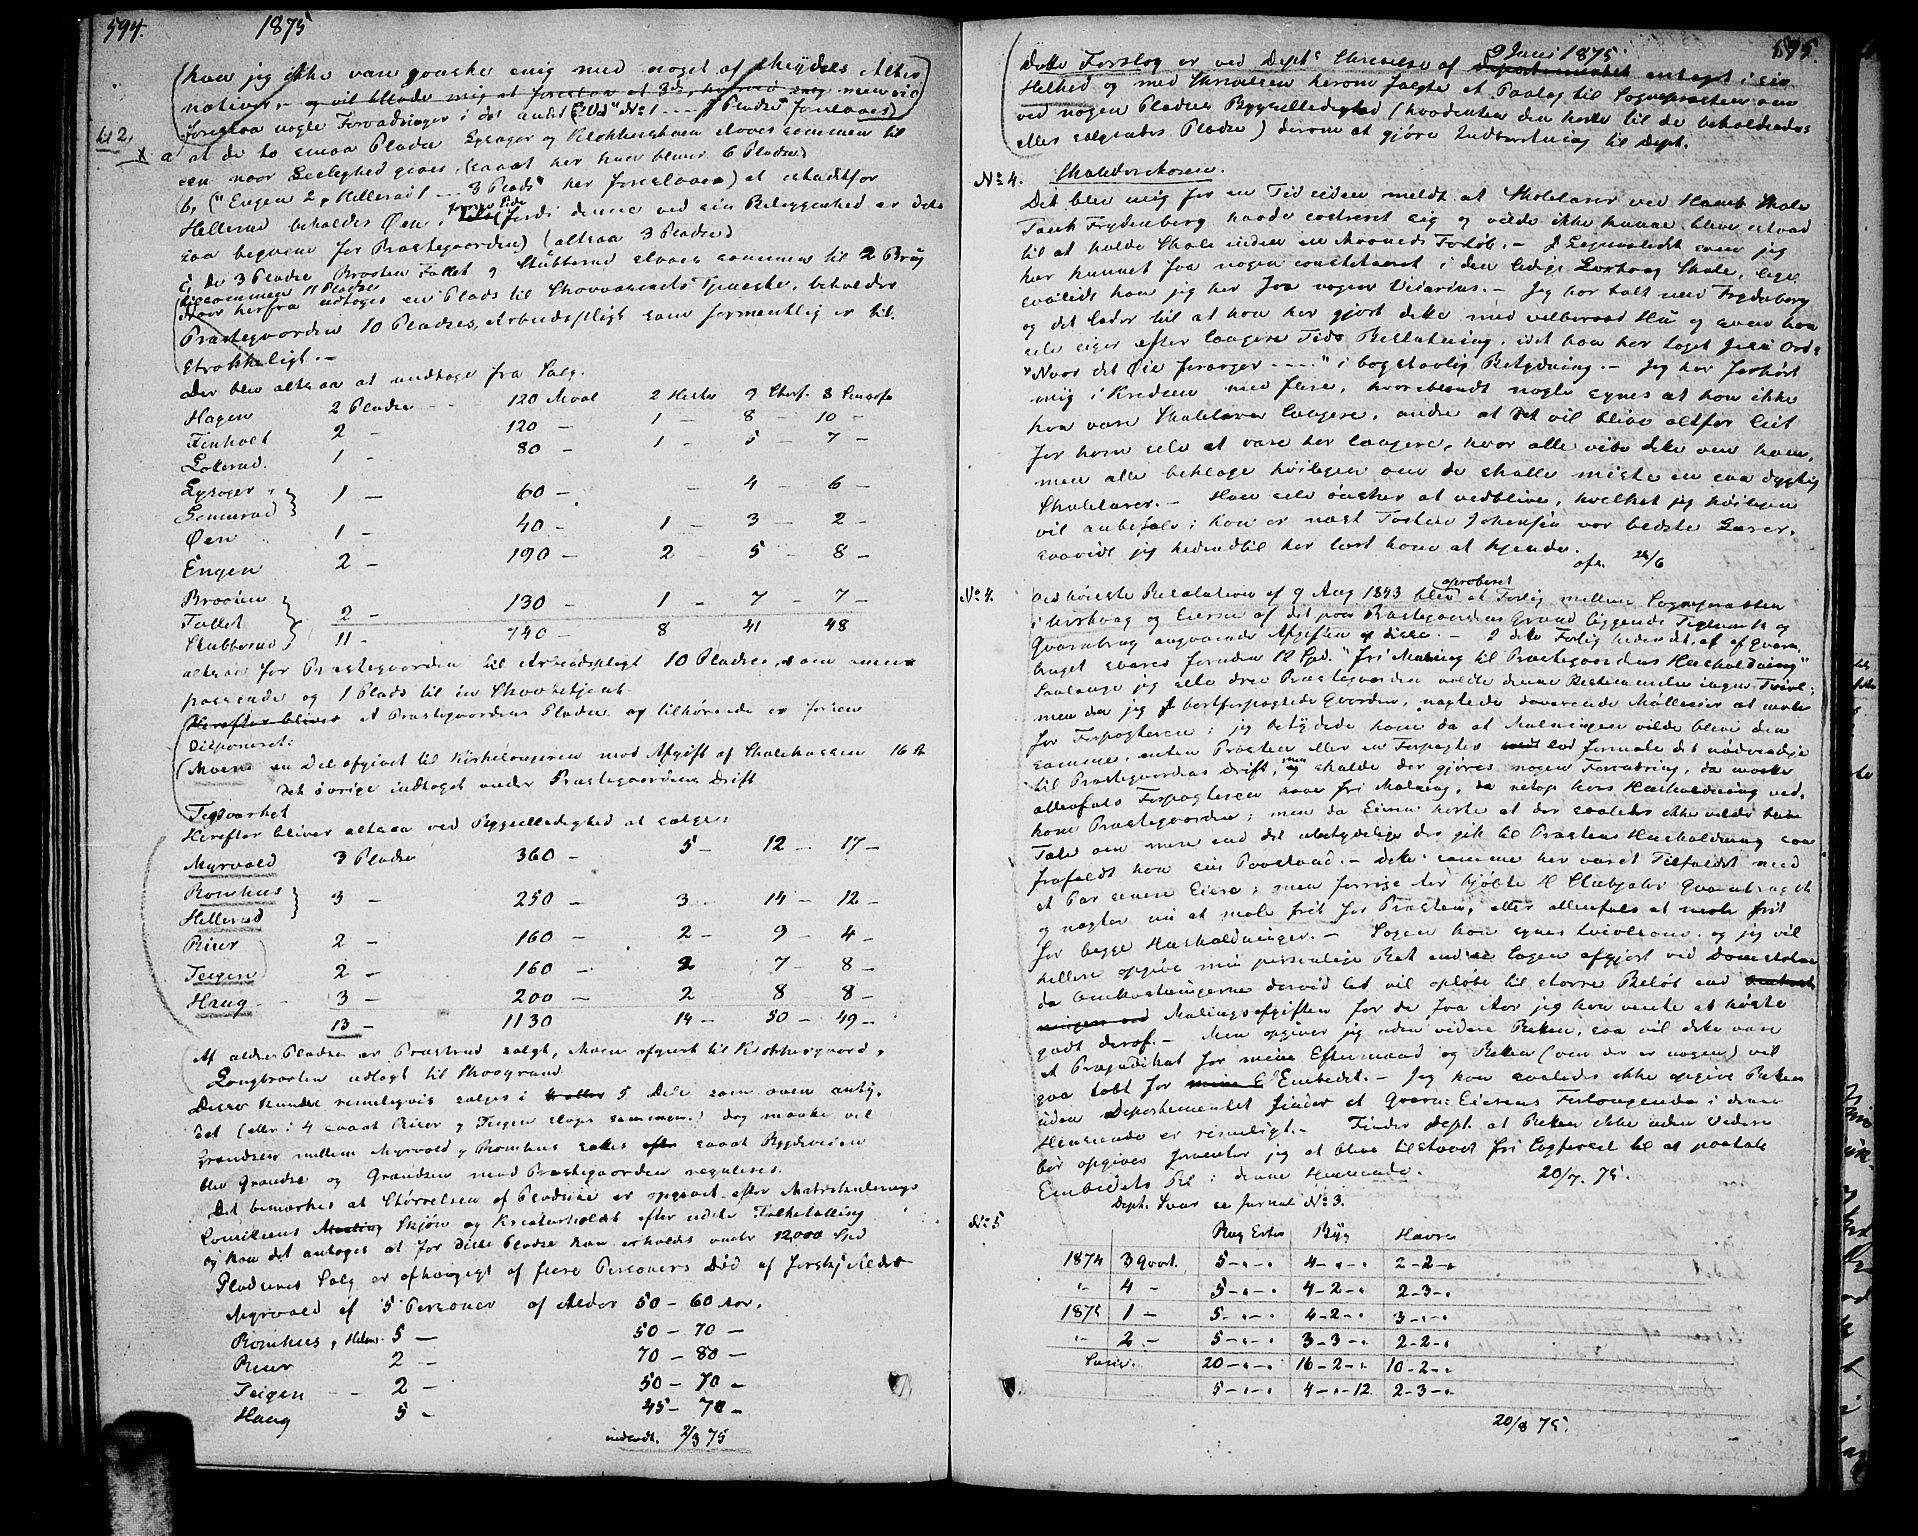 594.
1875
kan jeg ikke være ganske enig med noget af Alter
nativer, og vil tillade mig at foreslaa et 3die, men vil
foreslaa nogle Forandringer i det andet No 1 - Pladse foreslaaes)
lit 2,
a at de to smaa Pladse Lysager og Klokkerhaven slaaes sammen til
een naar Leilighed gives, (saaat her kun bliver 6 Pladse)
b, ("Engen 2, Hellerud 1 - 3 Plads" her foreslaaes) at istedetfor
Hellerud beholdes Øen, fordi denne ved sin Beliggenhed er
saa beqvem for Præstegaarden) (altsaa 3 Pladse)
c, de 3 Pladse, Braaten Fallet og Stubberud slaaes sammen til 2 Brug
tilsammen 11 Pladse
Naar herfra udtages en Plads til Skovvæsenets Tjeneste, beholder
Præstegaarden 10 Pladses Arbeidspligt som formentlig er til-
strækkeligt. -
Der blev altsaa at undtage fra Salg.
Hagen 2 Pladse 120 Maal 2 Heste 9 Storf. 8 Smaaf
Finholt 2 - 120 - 1 - 8 10 -
1 - 80 - 1 - 5 - 7 -
Lysager 1 - 60 - - 4 - 6 -
Øen 1 - 40 - 1 - 3 - 2 -
Engen 2 - 190 - 2 - 5 - 8 -
Braaten
Fallet 2 - 130 - 1 - 7 - 7 -
Stubberud 11 - 740 - 8 41 48
altsaa for Præstegaarden til Arbeidspligt 10 Pladse, som
passende og 1 Plads til en Skovbetjent.
Herefter bliver Præstegaardens Pladse og tilhørende
Disponeret:
Moen en Del afgivet til Kirkesangeren mod Afgift af Skolekassen 16
Det øvrige indtaget under Præstegaardens Drift
Teglværket
Herefter bliver altsaa ved Byggselledighed at sælge:
Myrvold 3 Pladse 360 - 5 - 12 - 17 -
Romhus
Hellerud 3 - 250 - 3 - 14 - 12 -
Riser 2 - 160 - 2 - 9 - 4 -
Teigen 2 - 160 - 2 7 - 8 -
Haug 3 - 200 - 2 8 8 -
13 - 1130 14 - 50 - 49 -
Af ældre Pladse er Præsterud solgt, Moen afgivet til Klokkergaard,
Langbraaten udlagt til Skovgrund.
Disse kunde rimeligvis sælges i 5 Dele som oven anty-
det (eller i 4 saaat Riser og Teigen slaaes sammen.) dog maatte vel
Grændsen mellem Myrvold og Romhus sættes saaat Bygdeveien
blev Grændse og Grændsen mod Præstegaarden reguleres.
Det bemærkes at Størrelsen af Pladsene er opgivet efter Matrikulerings
Comiteens Skjøn og Kreaturholdet efter sidste Folketælling
og kan det antages at for disse Pladse kan erholdes under 12000 Spd
Pladsenes Salg er afhængigt af flere Personers Død af forskj. Alder
Myrvold af 5 Personer af Alder 50 - 60 Aar.
Romhus, 5 - 50 - 70 -
Riser 2 - 70 - 80 -
Teigen 2 - 50 - 70 -
Haug 5 - 45 - 70 -
indsendt. 2/3 75
595.
9 Juni 1875
Dette Forslag er ved Depts Skrivelse af antaget i sin
Helhed og med Skrivelsen herom fulgte et Paalæg til Sognepræsten om
ved nogen Pladses Byggselledighed (hvadenten den hører til de beholdendes
eller salgsatte Pladse) derom at gjøre Indberetning til Dept.
No 4. Skoledirektøren.
Det blev mig for en Tid siden meldt at Skolelærer ved Skole
Frydenberg havde og vilde ikke kunne blive istand
til at holde Skole inden en Maaneds Forløb. -
har kunnet faa nogen constitueret i den ledige Skole, lige
saalidt kan jeg her faa nogen Vicarius. - Jeg har talt med Frydenberg
og det lader til at han har gjort dette med velberaad Hu og som han
selv siger efter længere Tids Beslutning, idet han har taget Ord:
"Naar dit Øie forarger - - -" i bogstavlig Betydning. - Jeg har forhørt
mig i Kredsen med flere, hvoriblandt nogle synes at han ikke
kan være Skolelærer længere, andre at det vil blive altfor leit
for ham selv at være her længere, hvor alle vide dette om ham,
men alle beklage høiligen om de skulle miste en saa dygtig
Skolelærer. - Han selv ønsker at vedblive, hvilket jeg høiligen
vil anbefale; han er næst Johansen vor bedste Lærer,
saavidt jeg hidindtil har lært ham at kjende.
afs. 26/6
No 4. Ved høieste Resolution af 9 Aug 1843 blev approberet et Forlig mellem Sognepræsten
i og Eieren af det paa Præstegaardens Grund liggende Teglværk og
Qvernbrug angaaende Afgiften af disse. - I dette Forlig hedder det, at af Qvern
bruget svares foruden 12 Spd. "fri Maling til Præstegaardens Huusholdning"
Saalænge jeg selv drev Præstegaarden voldte denne Bestemmelse ingen Tvivl;
men da jeg bortforpagtede Gaarden, nægtede daværende Mølleeier at male
for Forpagteren; jeg betydede ham da at Malningen vilde blive den
samme, enten Præsten eller en Forpagter lod formale det nødvendige
til Præstegaardens Drift, men skulde der gjøres nogen Forandring, da maatte
allenfals Forpagteren have fri Malning, da netop hans Huusholdning ved-
kom Præstegaarden; men da Eieren hørte at der saaledes ikke vilde blive
Tale om mere end det ubetydelige der gik til Præstens Huusholdning saa
frafaldt han sin Paastand. - Dette samme har været Tilfældet med
et Par senere Eiere; men forrige Aar kjøbte Qvernbruget
og nægter nu at male frit for Præsten, eller allenfals at male frit
for begge Huusholdninger. - Sagen kan synes tvivlsom, og jeg vil
hellere opgive min personlige Ret end see Sagen afgjort ved Domstolene
da Omkostningerne derved let vil opløbe til større Beløb end
Malingsafgiften for de faa Aar jeg kan vente at høste
godt deraf. - Men opgiver jeg uden videre Retten, saa vil dette være
et Præjudikat for mine Eftermænd og Retten (om der er nogen) vil
gaa tabt for Embedet. - Jeg kan saaledes ikke opgive Retten
uden Departementet finder at Qvern-Eierens Forlangende i denne
Henseende er rimeligt. - Finder Dept. at Retten ikke uden videre
bør opgives forventer jeg at blive tilstaaet fri Sagførsel til at paatale
Embedets Ret i denne Henseende. 20/7. 75.
Depts Svar se Journal No 3.
No 5
Rug Erter Byg Havre
1874 3 Qvart. 5 - „ - „ 4 - „ - „ 2 - 2 - „
„ 4 - 5 - „ - „ 4 - 2 - „ 2 - 3 - „
1875 1 - 5 - „ - „ 4 - 2 - „ 3 - „ - „
„ 2 - 5 - „ - „ 3 - 3 - „ 2 - 2 - „
20 - „ - „ 16 - 2 - „ 10 - 2 - „
5 - „ - „ 4 - „ - 12 2 - 3 - „
20/8 75.